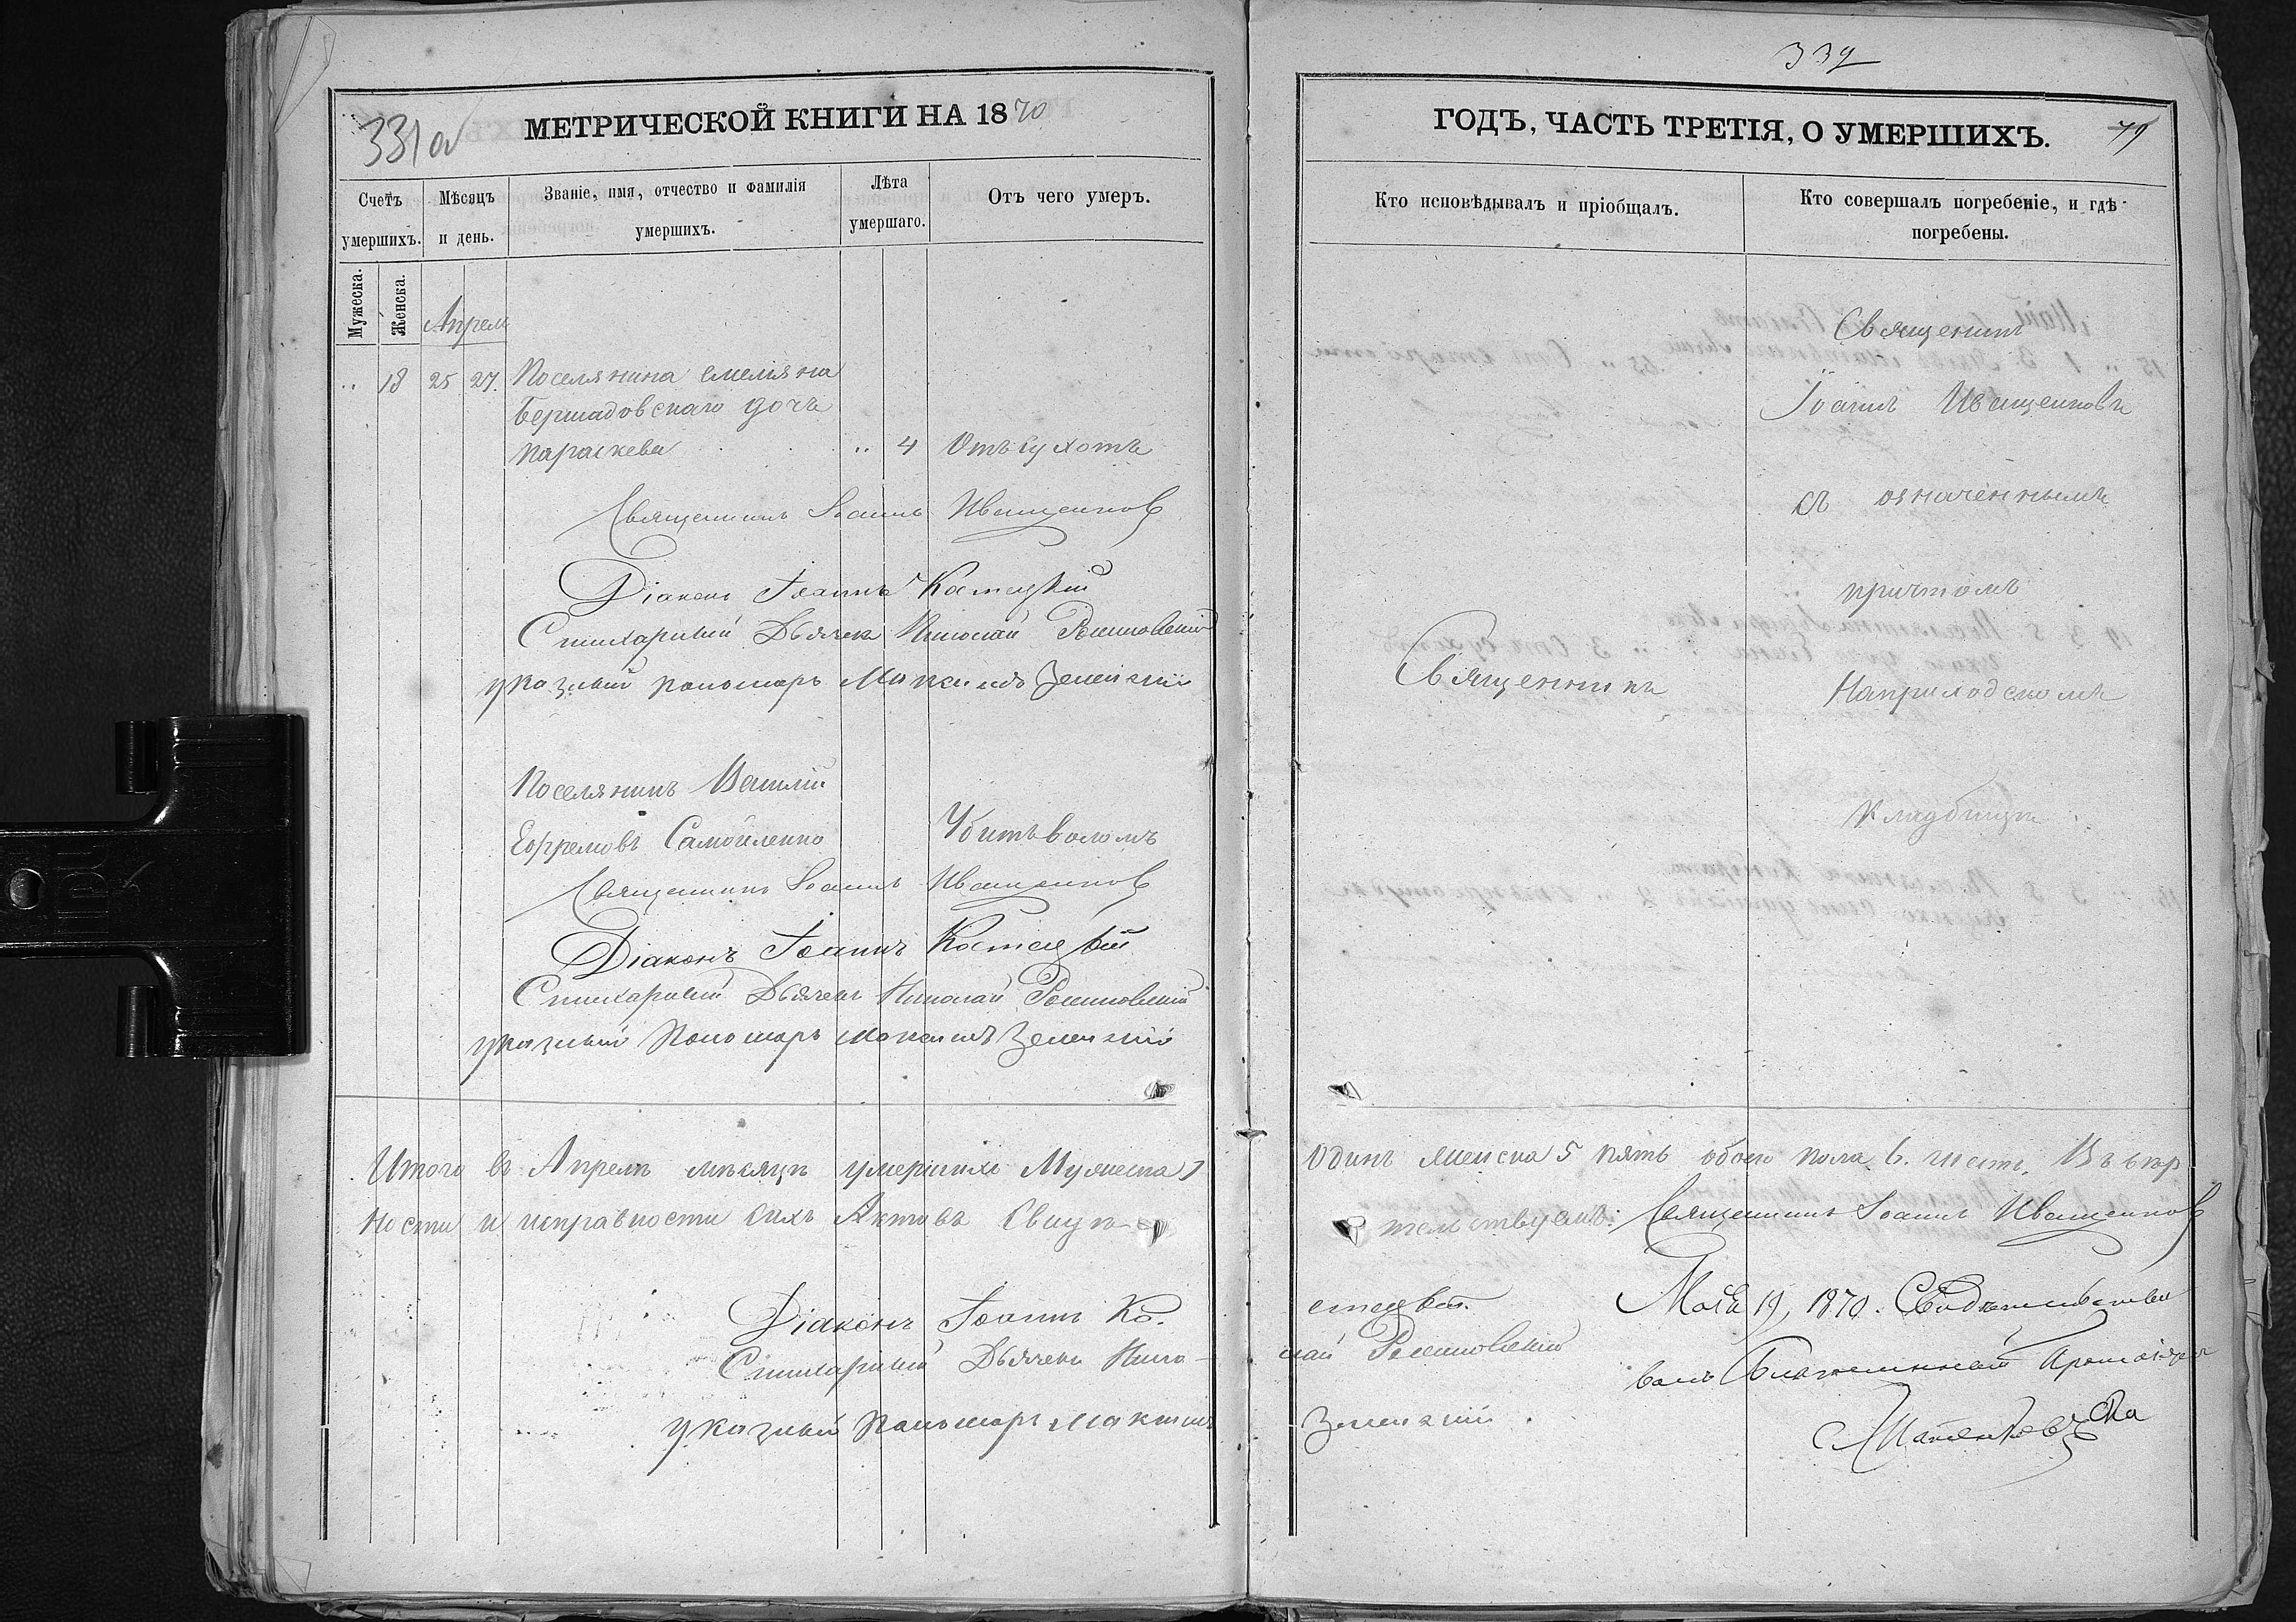 331 об
МЕТРИЧЕСКОЙ КНИГИ НА 1870
Счетъ умершихъ.
Мѣсяцъ и день.
Званіе, имя, отчество и фамилія умершихъ.
Лѣта умершаго.
Отъ чего умеръ.
Мужеска.
Женска.
Апрель
.. 18 25 27. Поселянина емеліяна
Бершадовскаго дочь
Параскева .. 4 Отъ сухотъ
Священникъ Іоаннъ Иващенковъ
Діаконъ Іоаннъ Костецкій
Стихарный Дьячек Николай
указный пономарь Максимъ Зеленскій
Поселянинъ Василій
Ефремовъ Самойленко Убитъ воломъ
Священникъ Іоаннъ Иващенковъ
Діаконъ Іоаннъ Костецкій
Стихарный Дьячекъ Николай
указный Пономарь Максимъ Зеленскій
Итого въ Апрелѣ мѣсяцѣ умершихъ Мужеска 1
ности и исправности сихъ Актовъ Свидѣ-
Діаконъ Іоаннъ Ко-
Стихарный Дьячекъ Нико-
указный Пономарь Максимъ
332
ГОДЪ, ЧАСТЬ ТРЕТІЯ, О УМЕРШИХЪ.
79
Кто исповѣдывалъ и пріобщалъ.
Кто совершалъ погребеніе, и гдѣ погребены.
Священникъ
Іоаннъ Иващенковъ
съ означеннымъ
причтомъ
Священникъ
На приходскомъ
кладбищѣ
Одинъ женска 5 пять обоего пола 6. шесть. Въ вѣр
тельствуемъ: Священникъ Іоаннъ Иващенковъ
стецкій.
лай
Зеленскій.
Мая 19, 1870. Свидѣтельство
валъ Благочинный Протоіерей